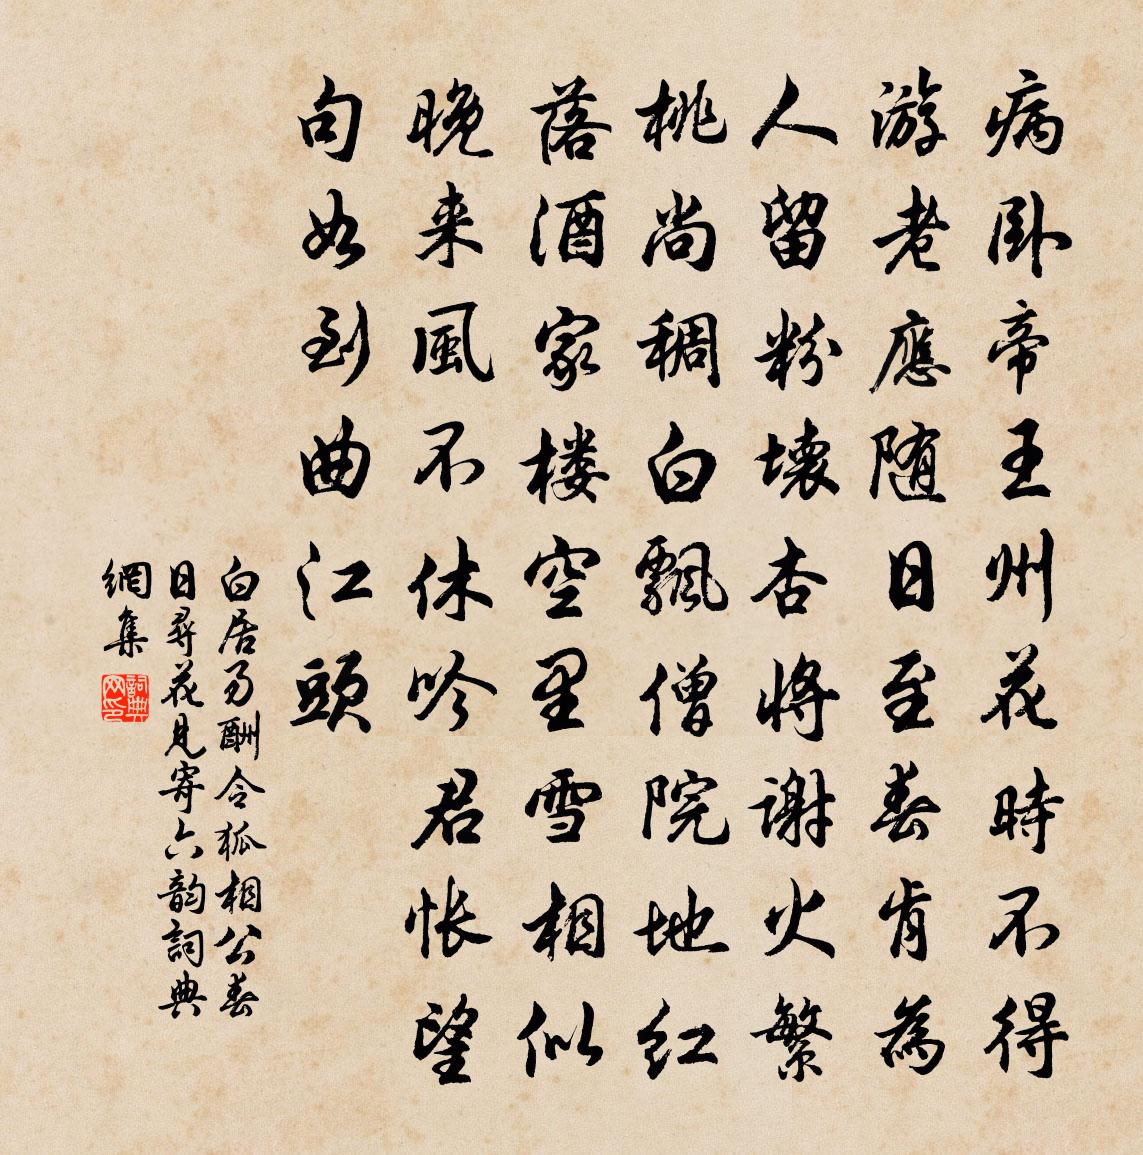 病卧帝王州花時不得
游老應随日至春肯為
人留粉壞杏将謝火繁
桃尚稠白飄僧院地红
落酒家楼空里雪相似
晚来風不休吟君怅望
句如到曲江頭
白居易酬令狐相公春
日尋花見寄六韵詞典
網集
詞典网印